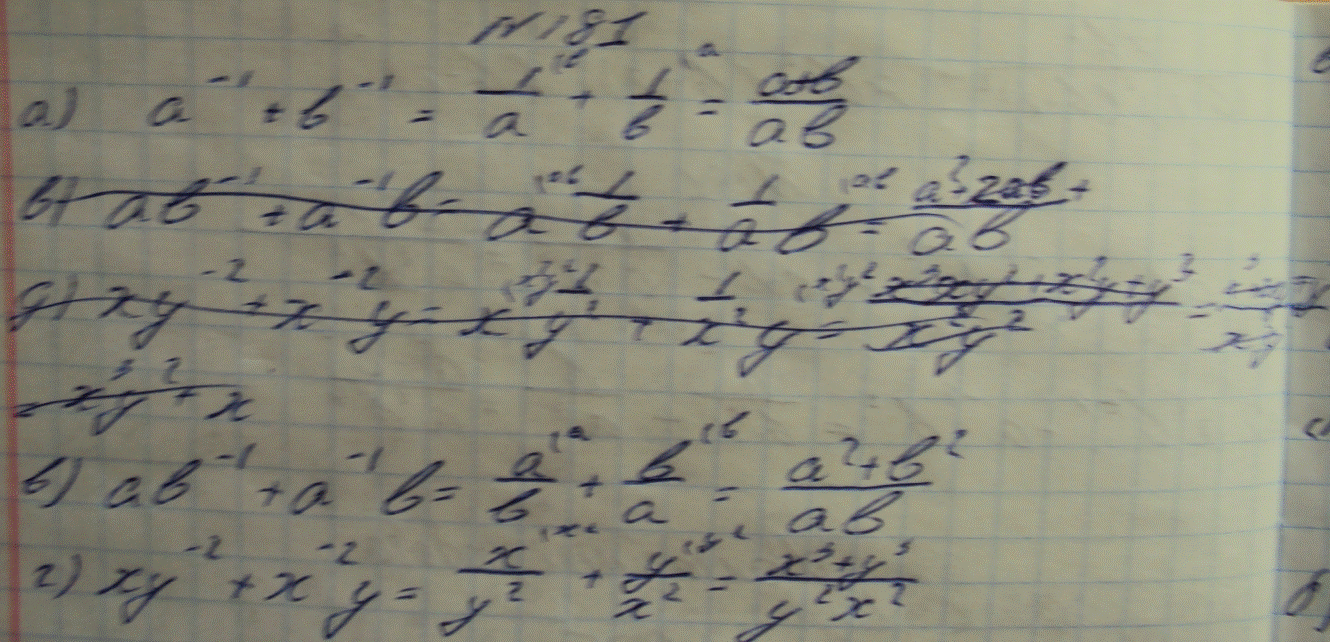 №181
а) a⁻¹ + b⁻¹ = 1/a + 1/b = a+b/ab
в) ab⁻¹ + a⁻¹b = a 1/b + 1/a b = a³+2ab+/ab
xy⁻² + x⁻²y = x 1/y² + 1/x² y =
x³y² + x
в) ab⁻¹ + a⁻¹b = a/b + b/a = a²+b²/ab
г) xy⁻² + x⁻²y = x/y² + y/x² = x³+y³/y²x²